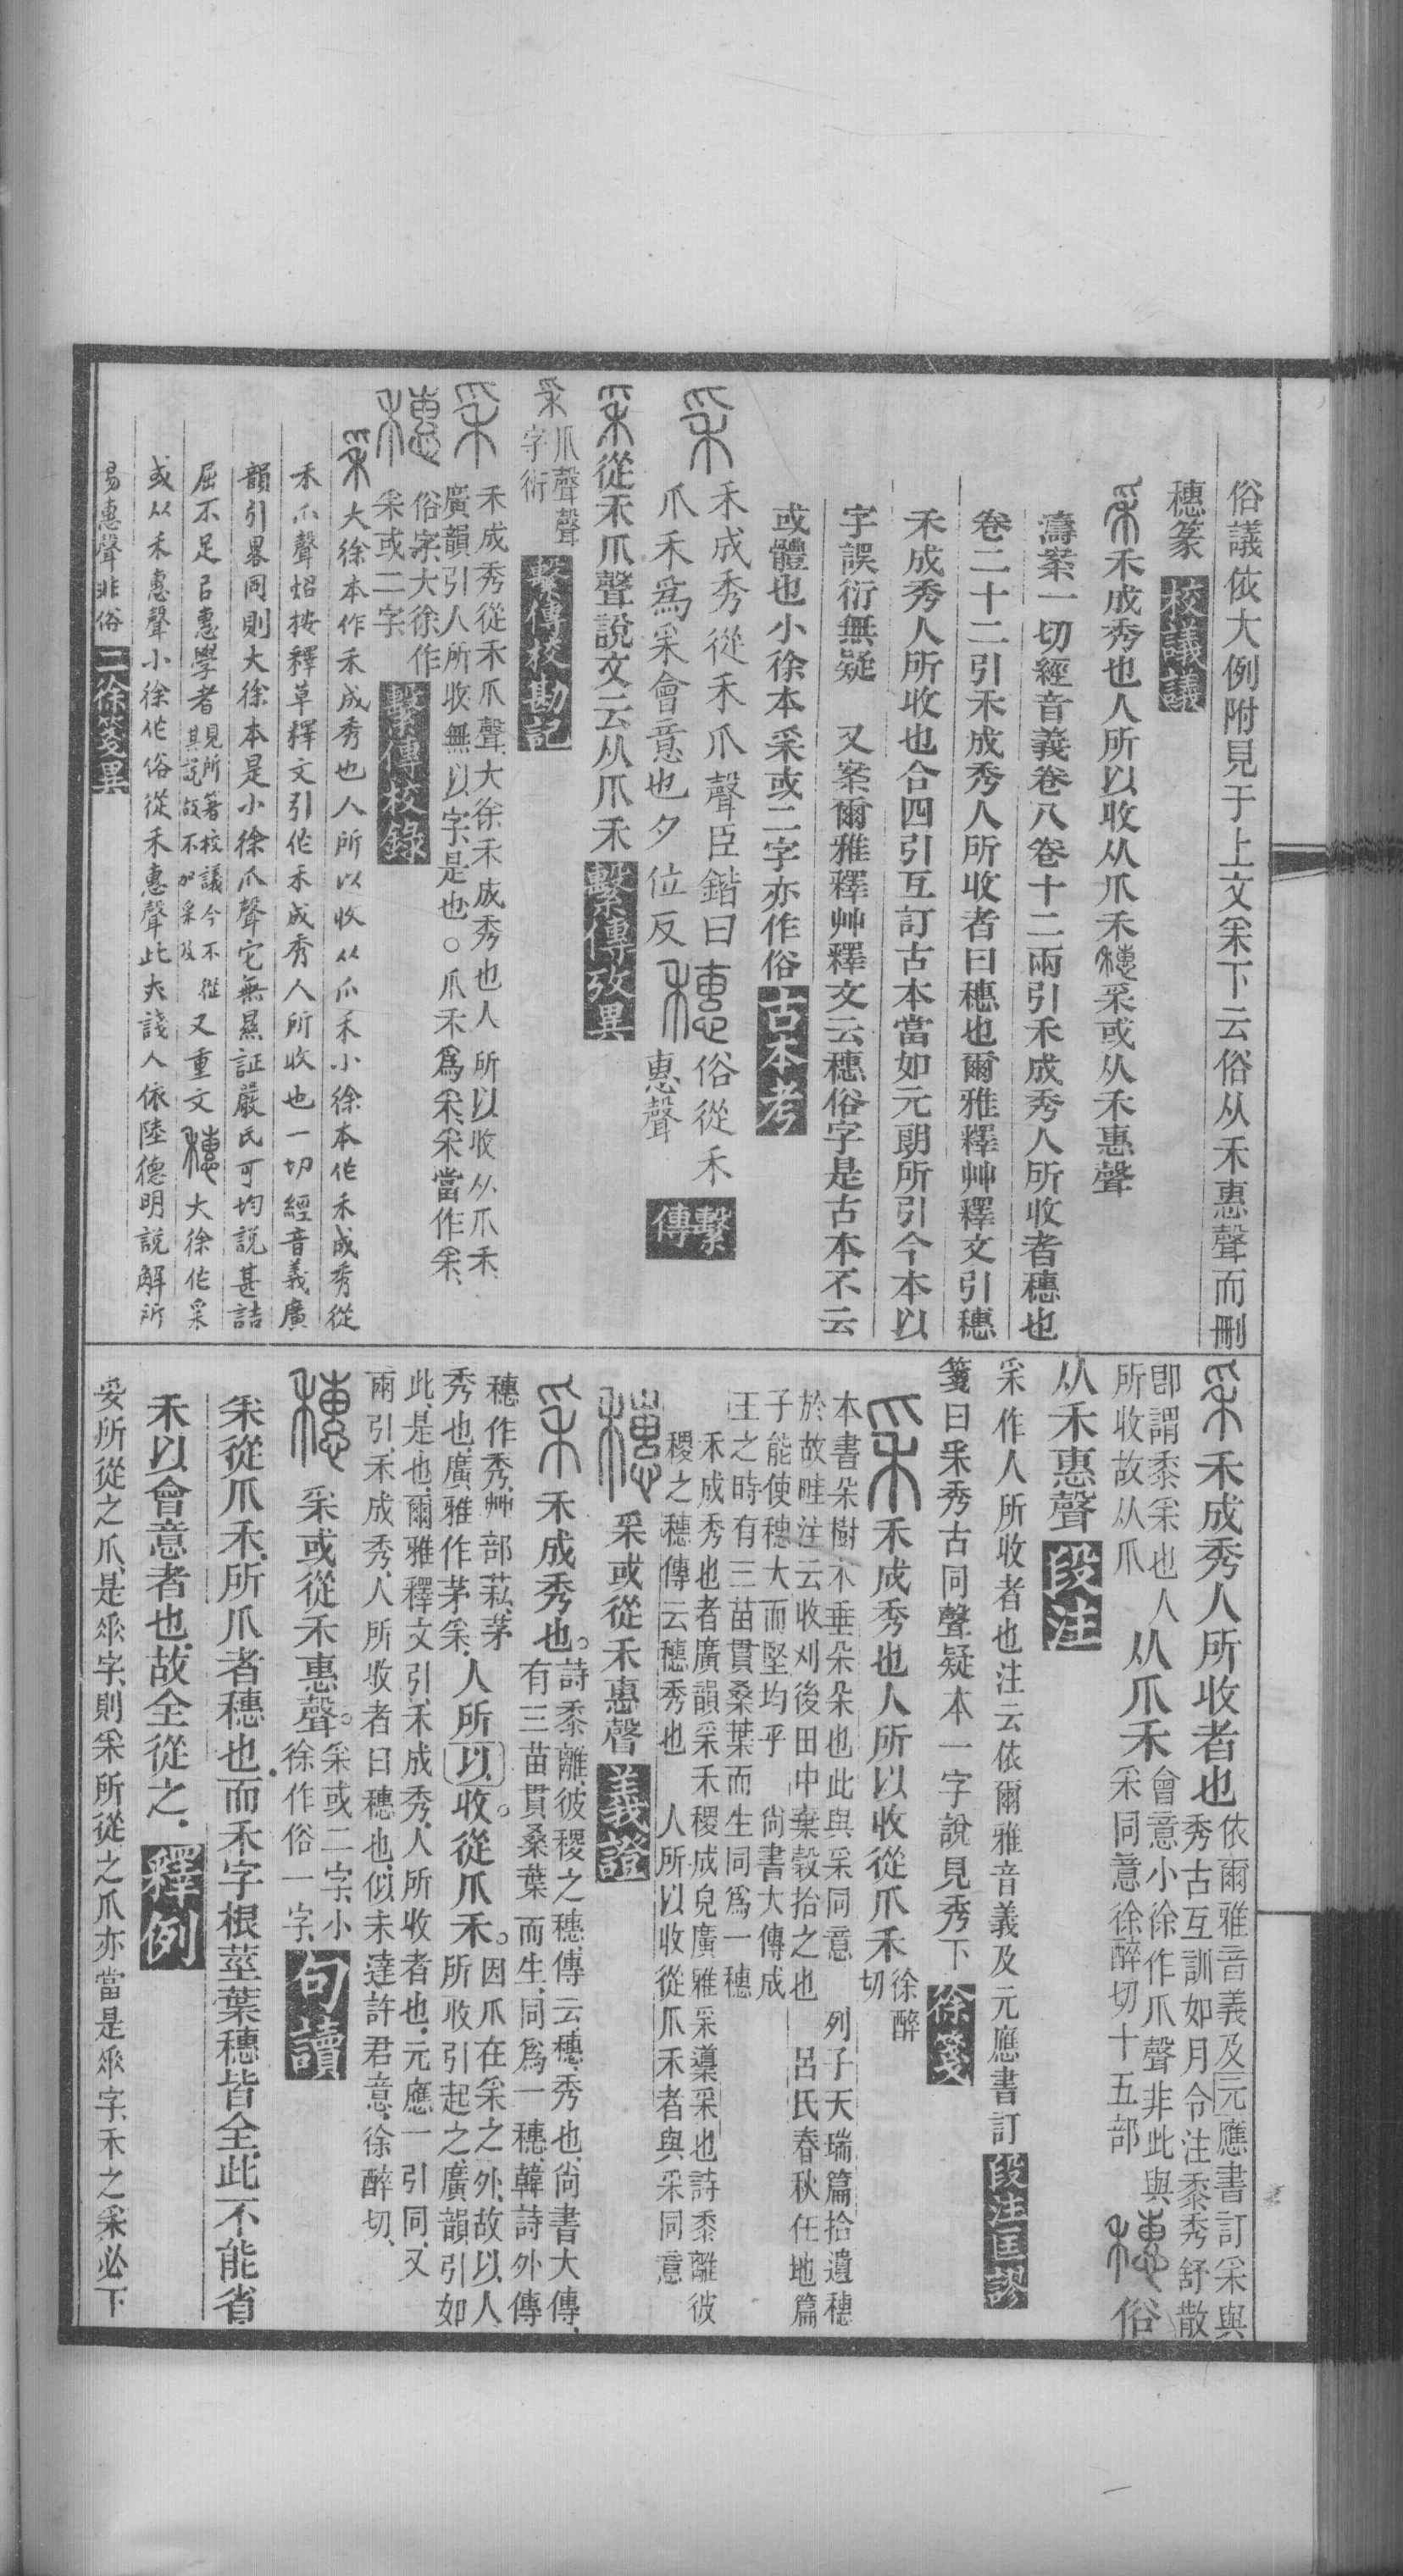 俗議依大例附見于上文采下云俗从禾惠聲而刪
穗篆 校議議
采禾成秀也人所以收从爪禾穗采或从禾惠聲
濤案一切經音義卷八卷十二兩引禾成秀人所收者穗也
卷二十二引禾成秀人所收者曰穗也爾雅釋艸釋文引穗
禾成秀人所收也合四引互訂古本當如元朗所引今本以
字誤衍無疑 又案爾雅釋艸釋文云穗俗字是古本不云
或體也小徐本采或二字亦作俗 古本考
采 禾成秀從禾爪聲臣鍇曰
爪禾爲采會意也夕位反
穗 俗從禾
惠聲
繫傳
采從禾爪聲說文云从爪禾 繫傳攷異
采 爪聲聲
字衍
繫傳校勘記
采 禾成秀從禾爪聲大徐禾成秀也人所以收从爪禾
廣韻引人所收無以字是也○爪禾爲采采當作采
穗 俗字大徐作
采或二字
繫傳校錄
采大徐本作禾成秀也人所以收从爪禾小徐本作禾成秀從
禾爪聲炤按釋草釋文引作禾成秀人所收也一切經音義廣
韻引畧同則大徐本是小徐爪聲它無㬎証嚴氏可均說甚詰
屈不足㠯惠學者
見所箸校議今不從
其說故不加采及
又重文穗大徐作采
或从禾惠聲小徐作俗從禾惠聲此夫淺人依陸德明說解所
易惠聲非俗 二徐箋異
采禾成秀人所收者也
依爾雅音義及元應書訂采與
秀古互訓如月令注黍秀舒散
卽謂黍采也人
所收故从爪
从爪禾
會意小徐作爪聲非此與
采同意徐醉切十五部
穗俗
从禾惠聲 段注
采作人所收者也注云依爾雅音義及元應書訂 段注匡謬
箋曰采秀古同聲疑本一字說見秀下 徐箋
采禾成秀也人所以收從爪禾
徐醉
切
本書朵樹木垂朵朵也此與采同意 列子天瑞篇拾遺穗
於故畦注云收刈後田中棄穀拾之也 呂氏春秋任地篇
子能使穗大而堅均乎 尙書大傳成
王之時有三苗貫桑葉而生同爲一穗
禾成秀也者廣韻采禾稷成皃廣雅采䆃采也詩黍離彼
稷之穗傳云穗秀也 人所以收從爪禾者與采同意
穗 采或從禾惠聲 義證
采禾成秀也。
詩黍離彼稷之穗傳云穗秀也尙書大傳
有三苗貫桑葉而生同爲一穗韓詩外傳
穗作秀艸部䔑茅
秀也廣雅作茅采
人所以收。從爪禾。
因爪在采之外故以人
所收引起之廣韻引如
此是也爾雅釋文引禾成秀人所收者也元應一引同又
兩引禾成秀人所收者曰穗也似未達許君意徐醉切
穗 采或從禾惠聲。
采或二字小
徐作俗一字
句讀
采從爪禾所爪者穗也而禾字根莖葉穗皆全此不能省
禾以會意者也故全從之 釋例
妥所從之爪是𠂹字則采所從之爪亦當是𠂹字禾之采必下